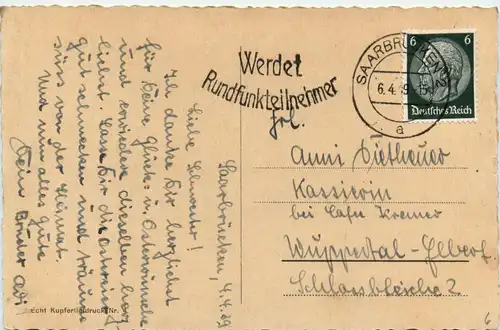 Saarbrücken, 4.4.39
Liebe Schwester!
Ich danke Dir herzlichst
für Deine Glücks- u. Osterwünsche
und erwiedere dieselben herz-
lichst. Lasse Dir die Ostereier
gut schmecken und träume
süss von der Heimat.
Und nun alles gute
Dein Bruder Adi
Werdet
Rundfunkteilnehmer
SAARBRÜCKEN 2
6.4.39
a
6 6
Deutsches Reich
Frl.
Anni Dietheuer
Kassierin
bei Cafe Kremer
Wuppertal-Elberf.
Schlossbleiche 2
Echt Kupfertiefdruck Nr.
6